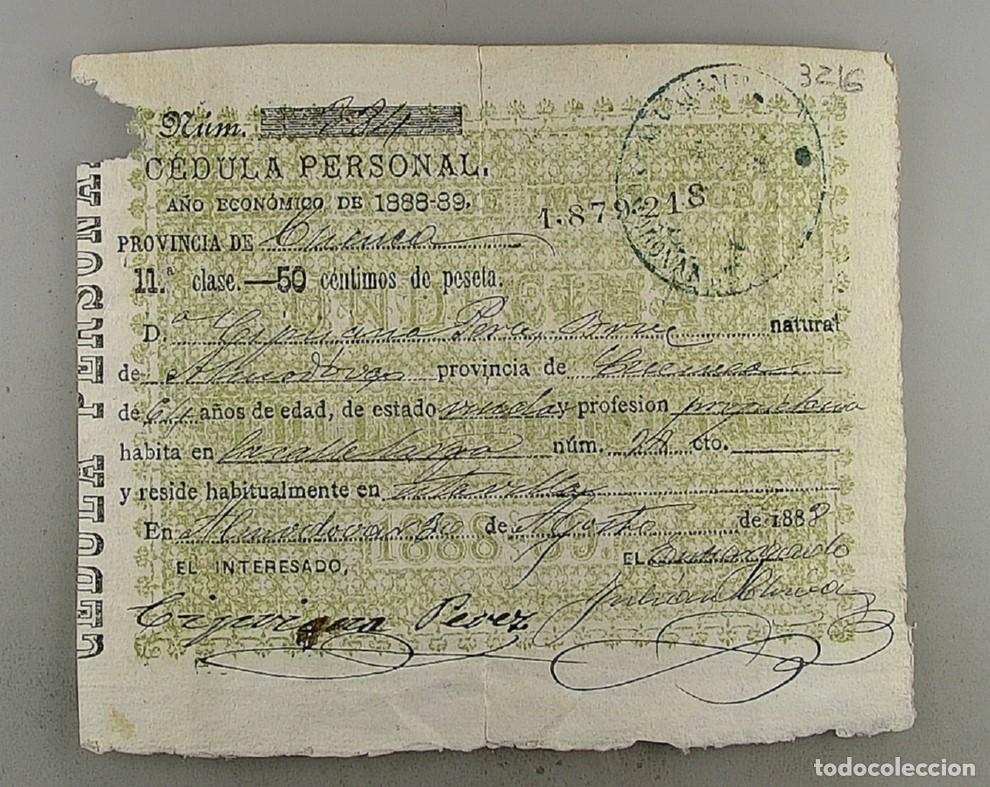 3216
Núm. 234
CÉDULA PERSONAL.
AÑO ECONÓMICO DE 1888-89.
1.879.218
PROVINCIA DE Cuenca
11.ª clase.—50 céntimos de peseta.
D.ª Cipriana Perez natural
de Almodovar provincia de Cuenca
de 64 años de edad, de estado viuda y profesion propietaria
habita en la calle larga núm. cto.
y reside habitualmente en esta villa
En Almodovar 30 de Agosto de 1888
1888
EL INTERESADO,
EL Encargado
Cipriana Perez
Julian
CEDULA PERSONAL
todocoleccion